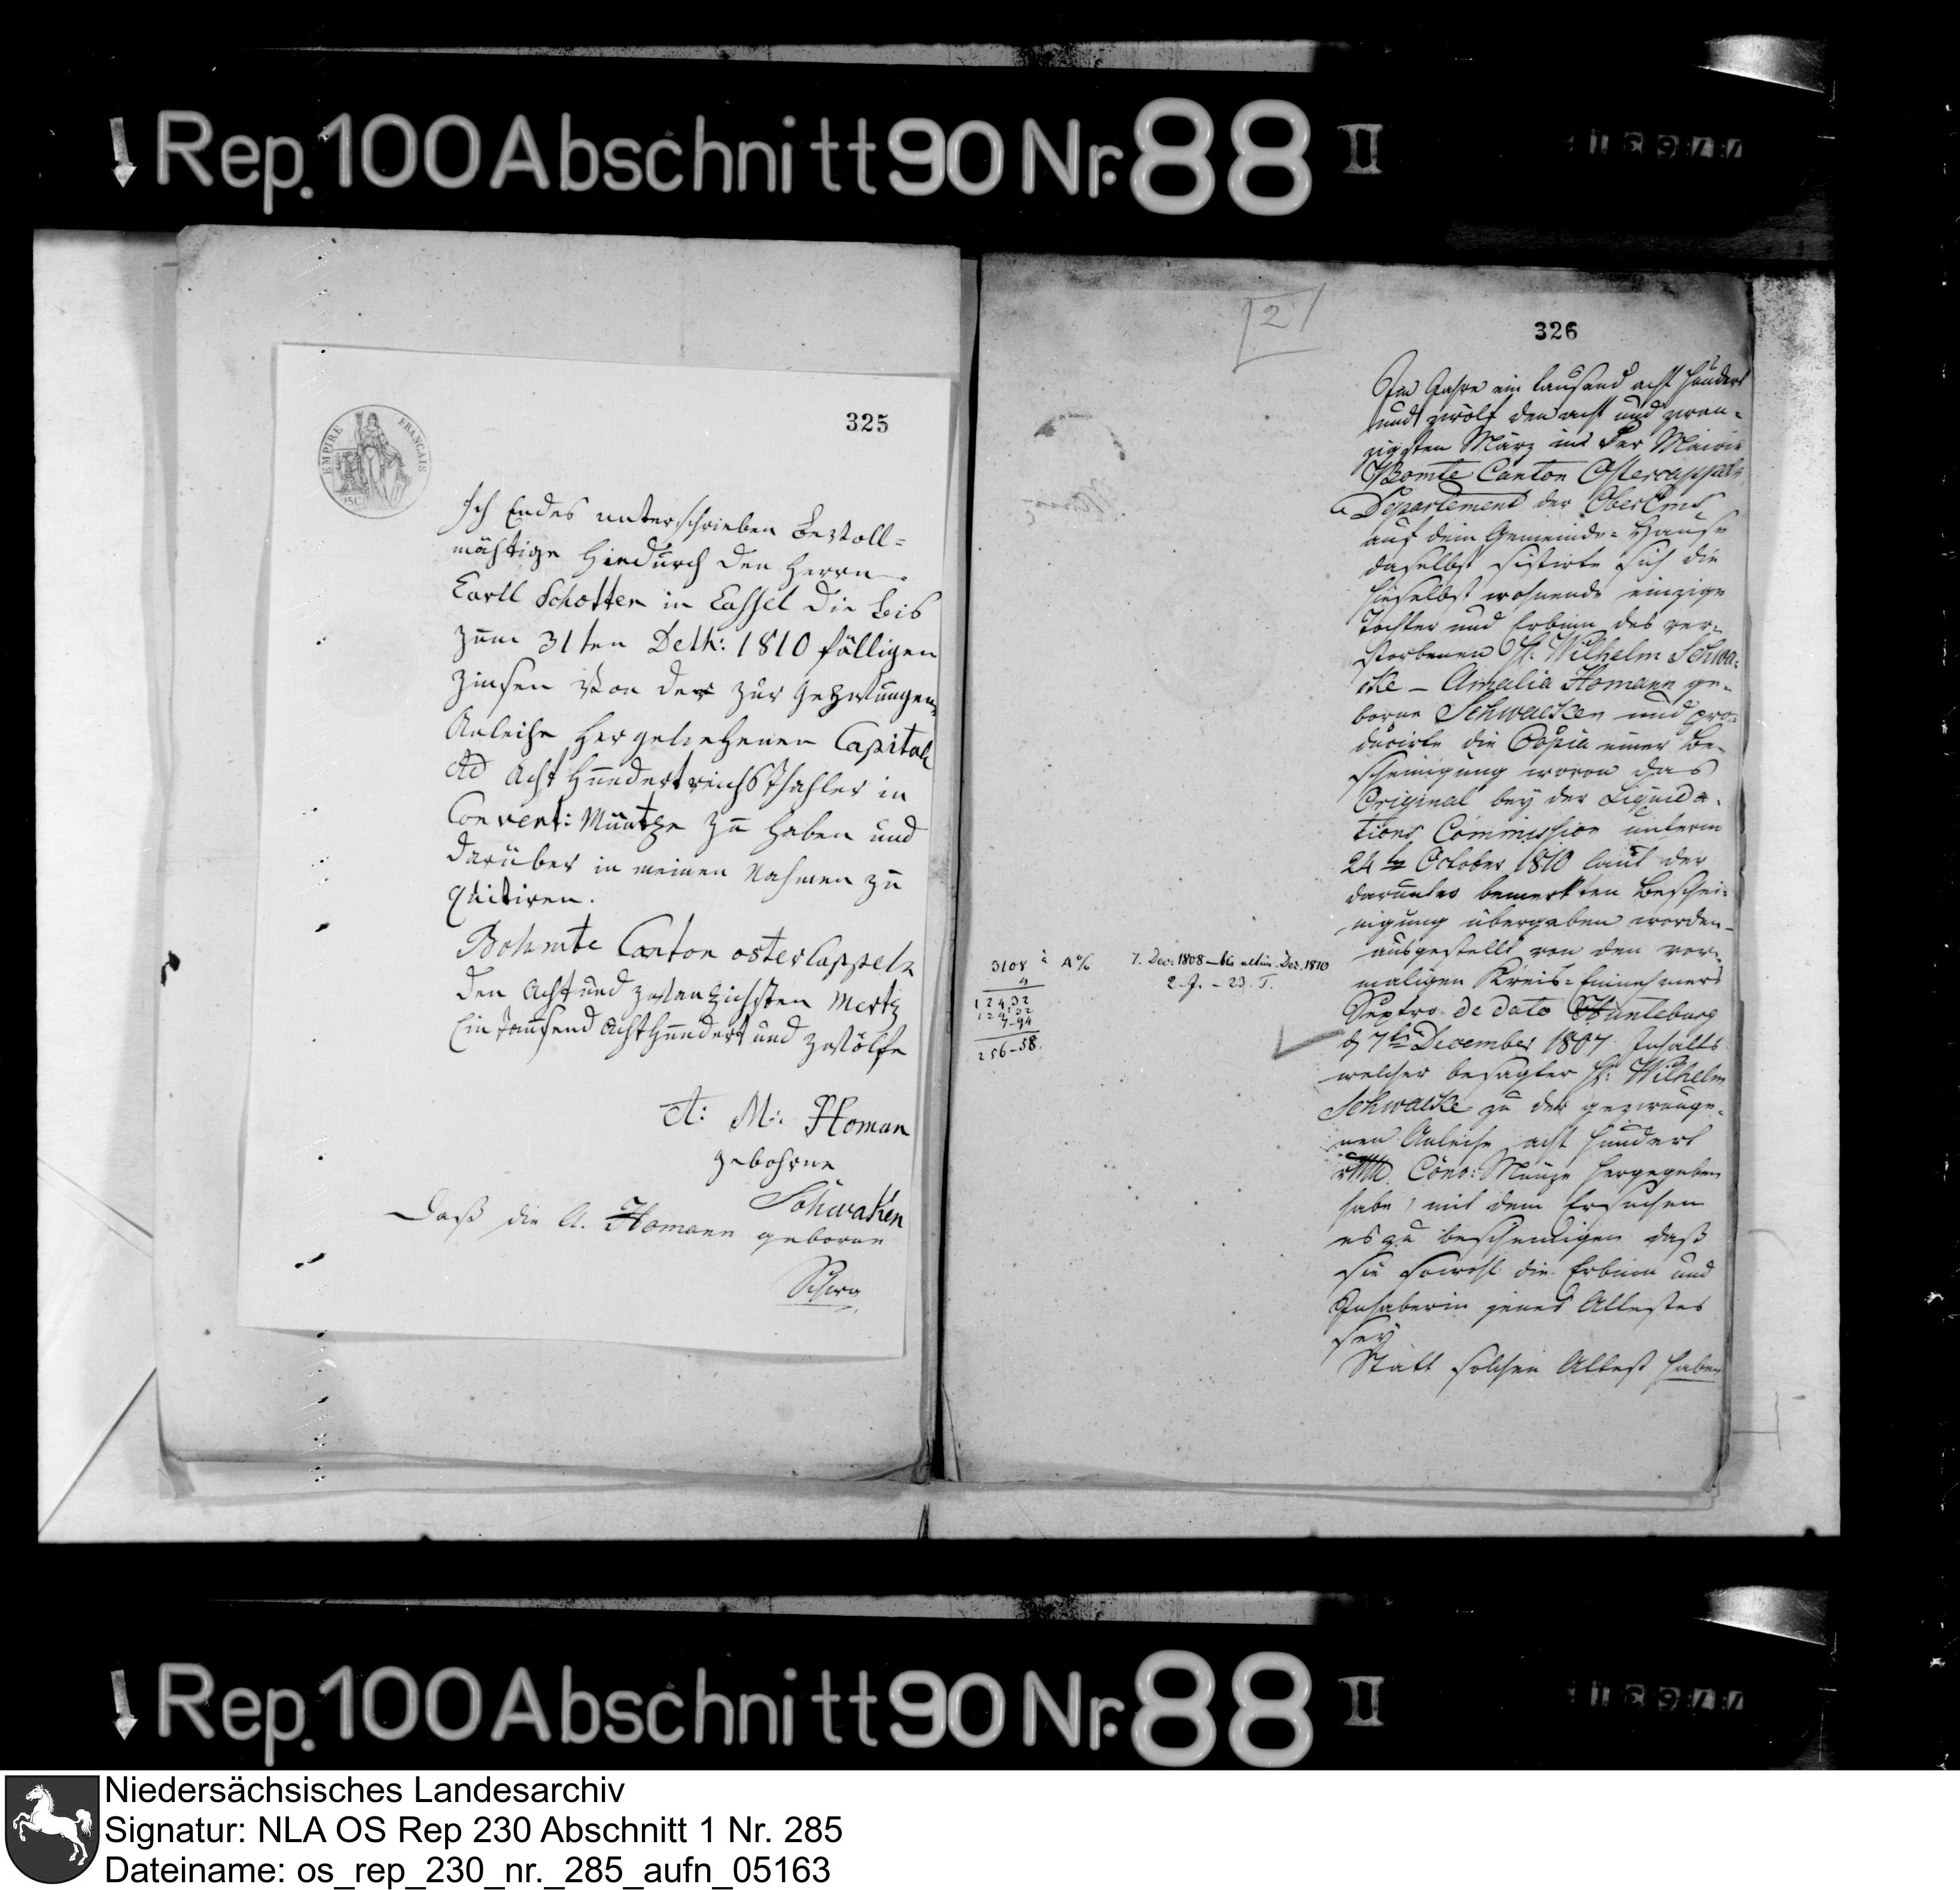 Rep. 100 Abschnitt 90 Nr. 88 II
325
EMPIRE FRANÇAIS
Ich Endes unterschrieben bevoll=
mächtige hiedurch den Herrn
Carll Schotten in Cassel die bis
zum 31ten Decb: 1810 fälligen
Zinsen von der zur gezwungen
Anleihe hergeliehenen Capital
Ad Acht hundert reichsthahler in
Convent: Müntze zu haben und
darüber in meinen Nahmen zu
quitiren.
Bohmte Canton ostercappeln
den Acht und zwanzichsten Mertz
Ein tausend Acht hundert und zwölfe
A: M: Homan
gebohrne
Schwaken
Daß die A. Homann geborne
Schwa
2
326
Im Jahre ein tausend acht hundert
und zwölf den acht und zwan=
zigsten März in der Mairie
Bomte Canton Ostercappeln
Departement der OberEms
auf dem Gemeinde=Hause
daselbst sistirte sich die
hieselbst wohnende einzige
Tochter und Erbinn des ver=
storbenen H: Wilhelm Schwa=
cke – Amalia Homann ge=
borne Schwacken und pro=
ducirte die Copia einer Be=
scheinigung wovon das
Original bey der Liquida=
tions Commission unterm
24ten October 1810 laut der
darunter bemerkten Beschei=
nigung übergeben worden
ausgestellt von den vor=
maligen Kreis=Einnehmer
Suptro de dato Hunteburg
d 7ten December 1807 Inhalts
welcher besagter H: Wilhelm
Schwacke zu der gezwunge=
nen Anleihe acht hundert
Conv: Münze hergegeben
habe, mit dem Ersuchen
es zu bescheinigen daß
sie sowohl die Erbinn und
Inhaberin jenes Attestes
sey
Statt solchen Attest haben
3108 à 4%
7. Dec. 1808 – bis ultim. Dec. 1810
2 J. – 23. T.
4
124,32
124,32
7-94
256-58
Rep. 100 Abschnitt 90 Nr. 88 II
Niedersächsisches Landesarchiv
Signatur: NLA OS Rep 230 Abschnitt 1 Nr. 285
Dateiname: os_rep_230_nr._285_aufn_05163